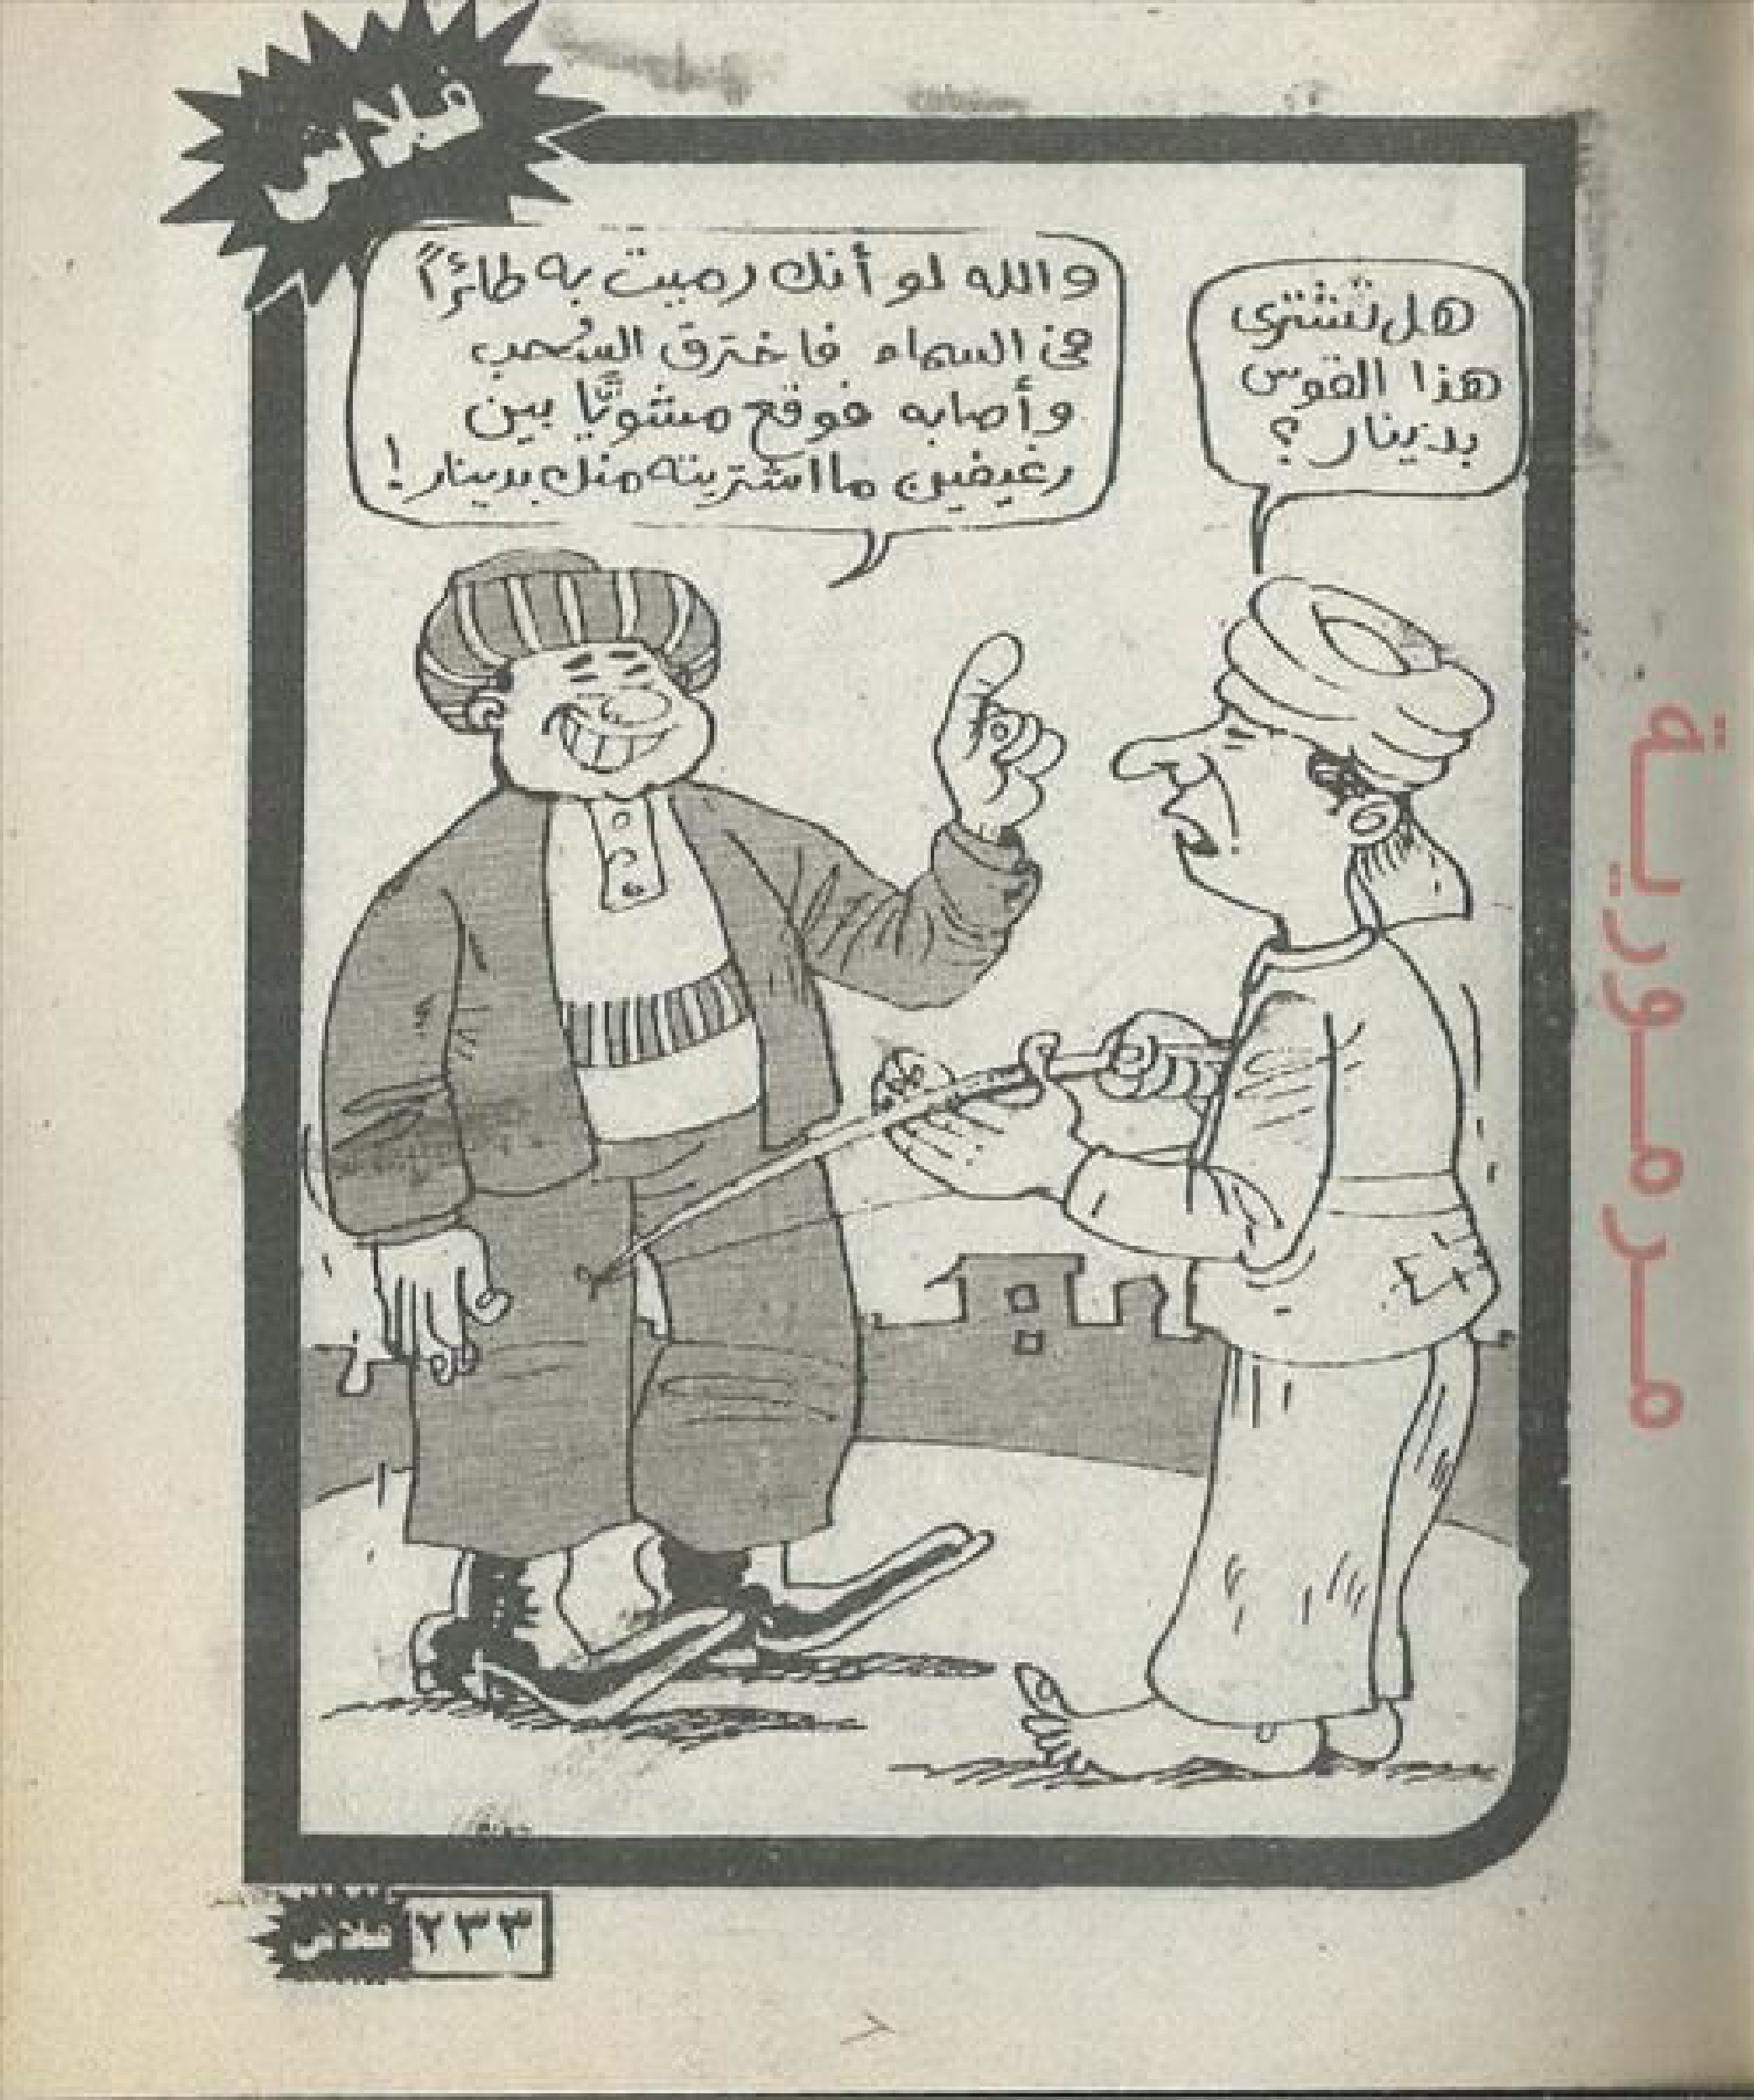 فلاش
هل تشترى
هذا القوس
بدينار؟
والله لو أنك رميت به طائرًا
فى السماء فاخترق السُحب
وأصابه فوقع مشويًّا بين
رغيفين ما اشتريته منك بدينار!
مرمورية
٢٣٣
فلاش